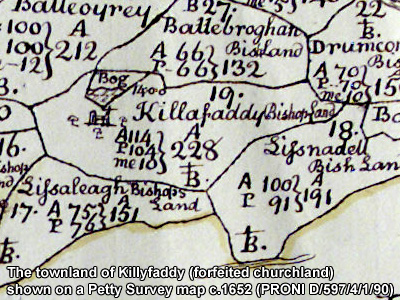 Balleoyrey
B27.
22
B.
100
100
12
A
212
Ballebroghan
A 66
P 66
Bishland
132
Drumcon
Bis
A 70
P 70
me 10
15
Bog
14 0 d
19.
Killafaddy Bishop Land
A 114
P 104
me 10
A
228
B.
16.
18.
Lissnadell
Bish Lan
A 100
P 91
A
191
B.
Lissaleagh Bishops
Land
17.
A 75
P 76
A
151
B.
The townland of Killyfaddy (forfeited churchland)
shown on a Petty Survey map c.1652 (PRONI D/597/4/1/90)